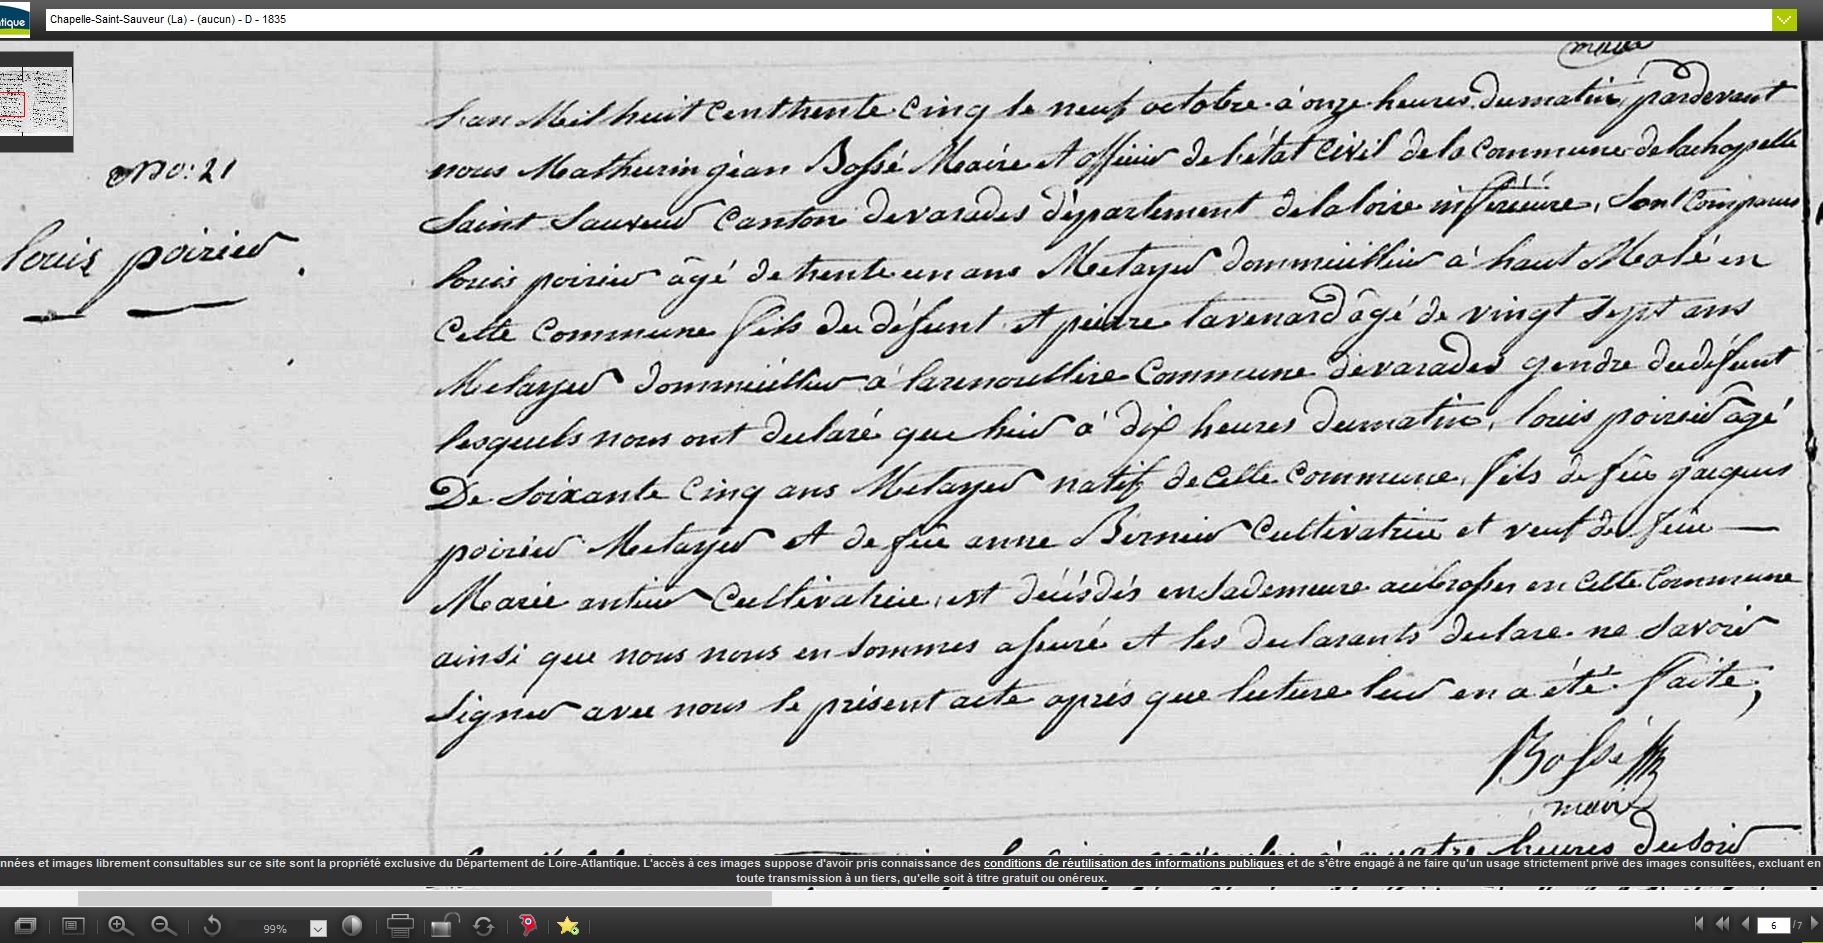 ntique
Chapelle-Saint-Sauveur (La) - (aucun) - D - 1835
maire
L'an Mil huit cent trente cinq le neuf octobre à onze heures du matin, pardevant
no: 21
nous Mathurin jean Bossé Maire et officier de l'état civil de la commune de lachapelle
Saint Sauveur canton de varades département de la loire inférieure, Sont comparus
louis poirier
louis poirier âgé de trente un ans Metayer dommicillier à haut Meslé en
cette commune fils du défunt et pierre tavenard âgé de vingt sept ans
Metayer dommicillier à la renoullire commune de varades gendre du défunt
lesquels nous ont declaré que hier à dix heures du matin, louis poirier âgé
De soixante cinq ans Metayer natif de cette commune, fils de feu jacques
poirier Metayer et de feue anne Bernier cultivatrice et veuf de feue
Marie cultivatrice, est décédés en sa demeure en cette commune
ainsi que nous nous en sommes assuré et les declarants declare ne savoir
signer avec nous le présent acte aprés que lecture leur en a été faite,
Bossé
maire
heures du soir
nnées et images librement consultables sur ce site sont la propriété exclusive du Département de Loire-Atlantique. L'accès à ces images suppose d'avoir pris connaissance des conditions de réutilisation des informations publiques et de s'être engagé à ne faire qu'un usage strictement privé des images consultées, excluant en
toute transmission à un tiers, qu'elle soit à titre gratuit ou onéreux.
99%
6 /7